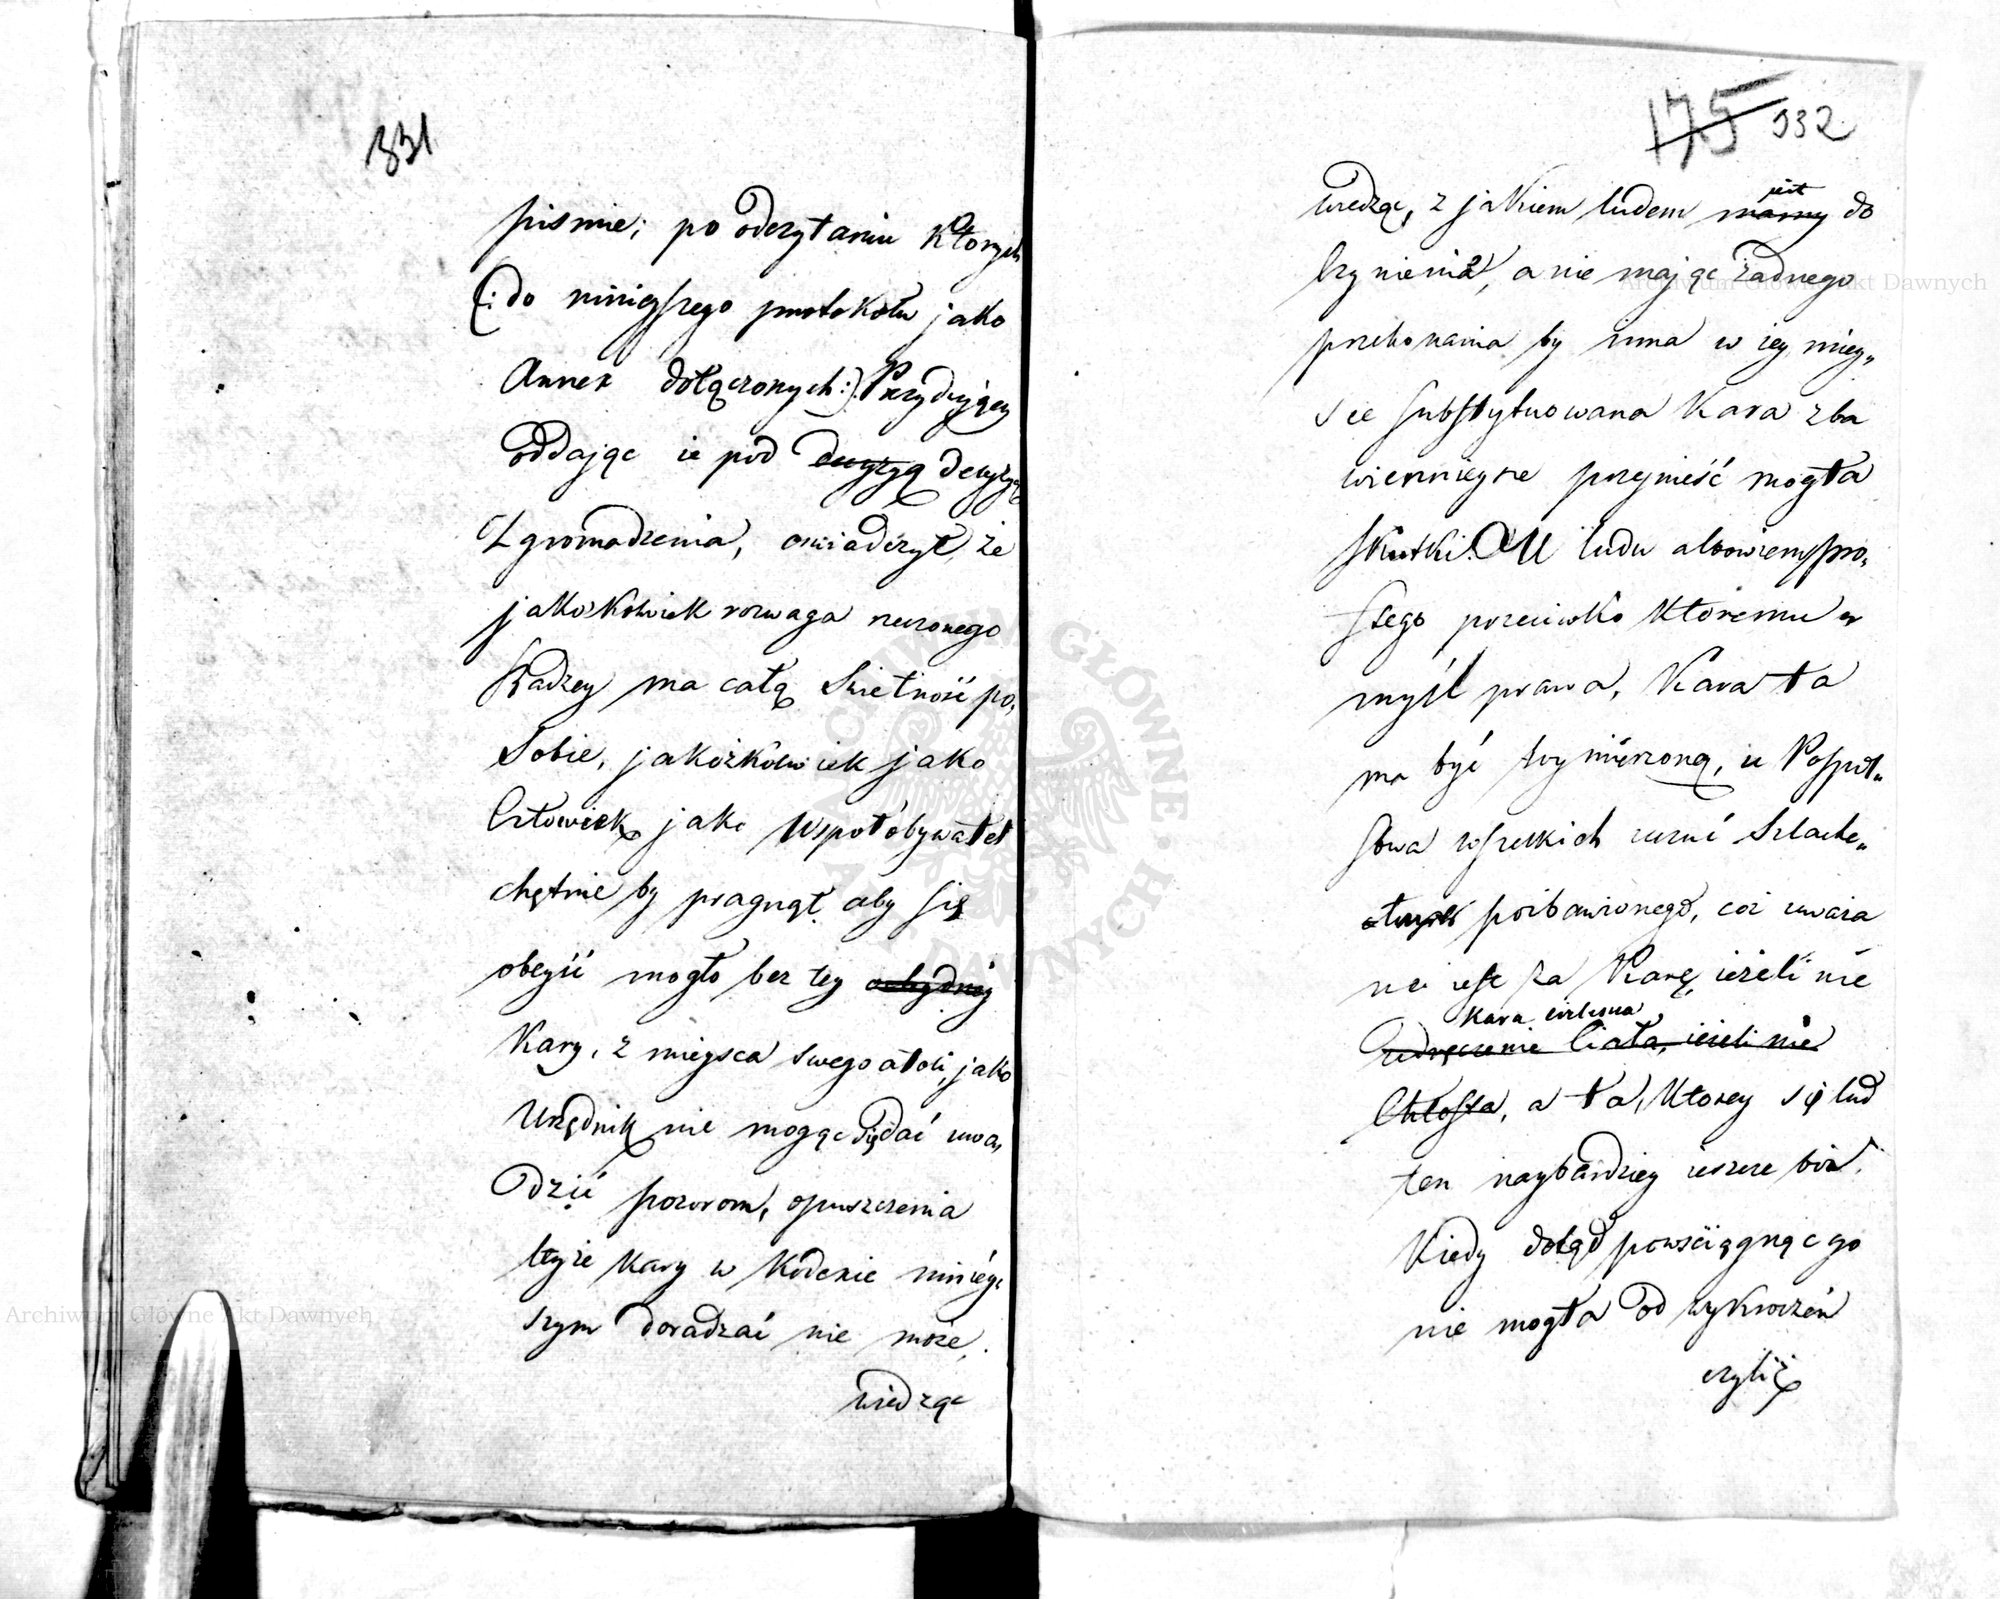 331
pismie; po odczytaniu ktorych
(: do ninieyszego protokołu jako
Annex dołączonych :) Prezydujący
oddając ie pod decyzyą decyzyą
Zgromadzenia, oswiadczył, że
jakożkolwiek rozwaga rzeczonego
Radzcy ma całą swietność po„
sobie, jakożkolwiek jako
Człowiek jako Wspołobywatel
chętnie by pragnął aby się
obeyść mogło bez tey
Kary, z mieysca swego atoli, jako
Urzędnik nie mogąc dydać uwo„
dzić pozorom, opuszczenia
teyże kary w Kodexie niniey„
szym doradzać nie może,
wiedząc
175 332
wiedząc, z jakiem ludem mamy jest do
czynienia, a nie mając żadnego
przekonania by inna w iey miey„
sce substytuowana Kara zba
wiennieysze przynieść mogła
skutki. U ludu albowiem pro„
stego przeciwko ktoremu w
myśl prawa, Kara ta
ma być wymierzoną, u Pospol„
stwa wszelkich uczuć szlache„
tnych pozbawionego, coż uważa
ne iest za Karę, ieżeli nie
Kara cielesna
udręczenie Ciała, ieżeli nie
Chłosta, a ta, Ktorey się lud
ten naybardziey ieszcze boi.
Kiedy dotąd powściągnąc go
nie mogła od wykroczeń
czyliż
Archiwum Główne Akt Dawnych
Archiwum Główne Akt Dawnych
ARCHIWUM GŁÓWNE AKT DAWNYCH